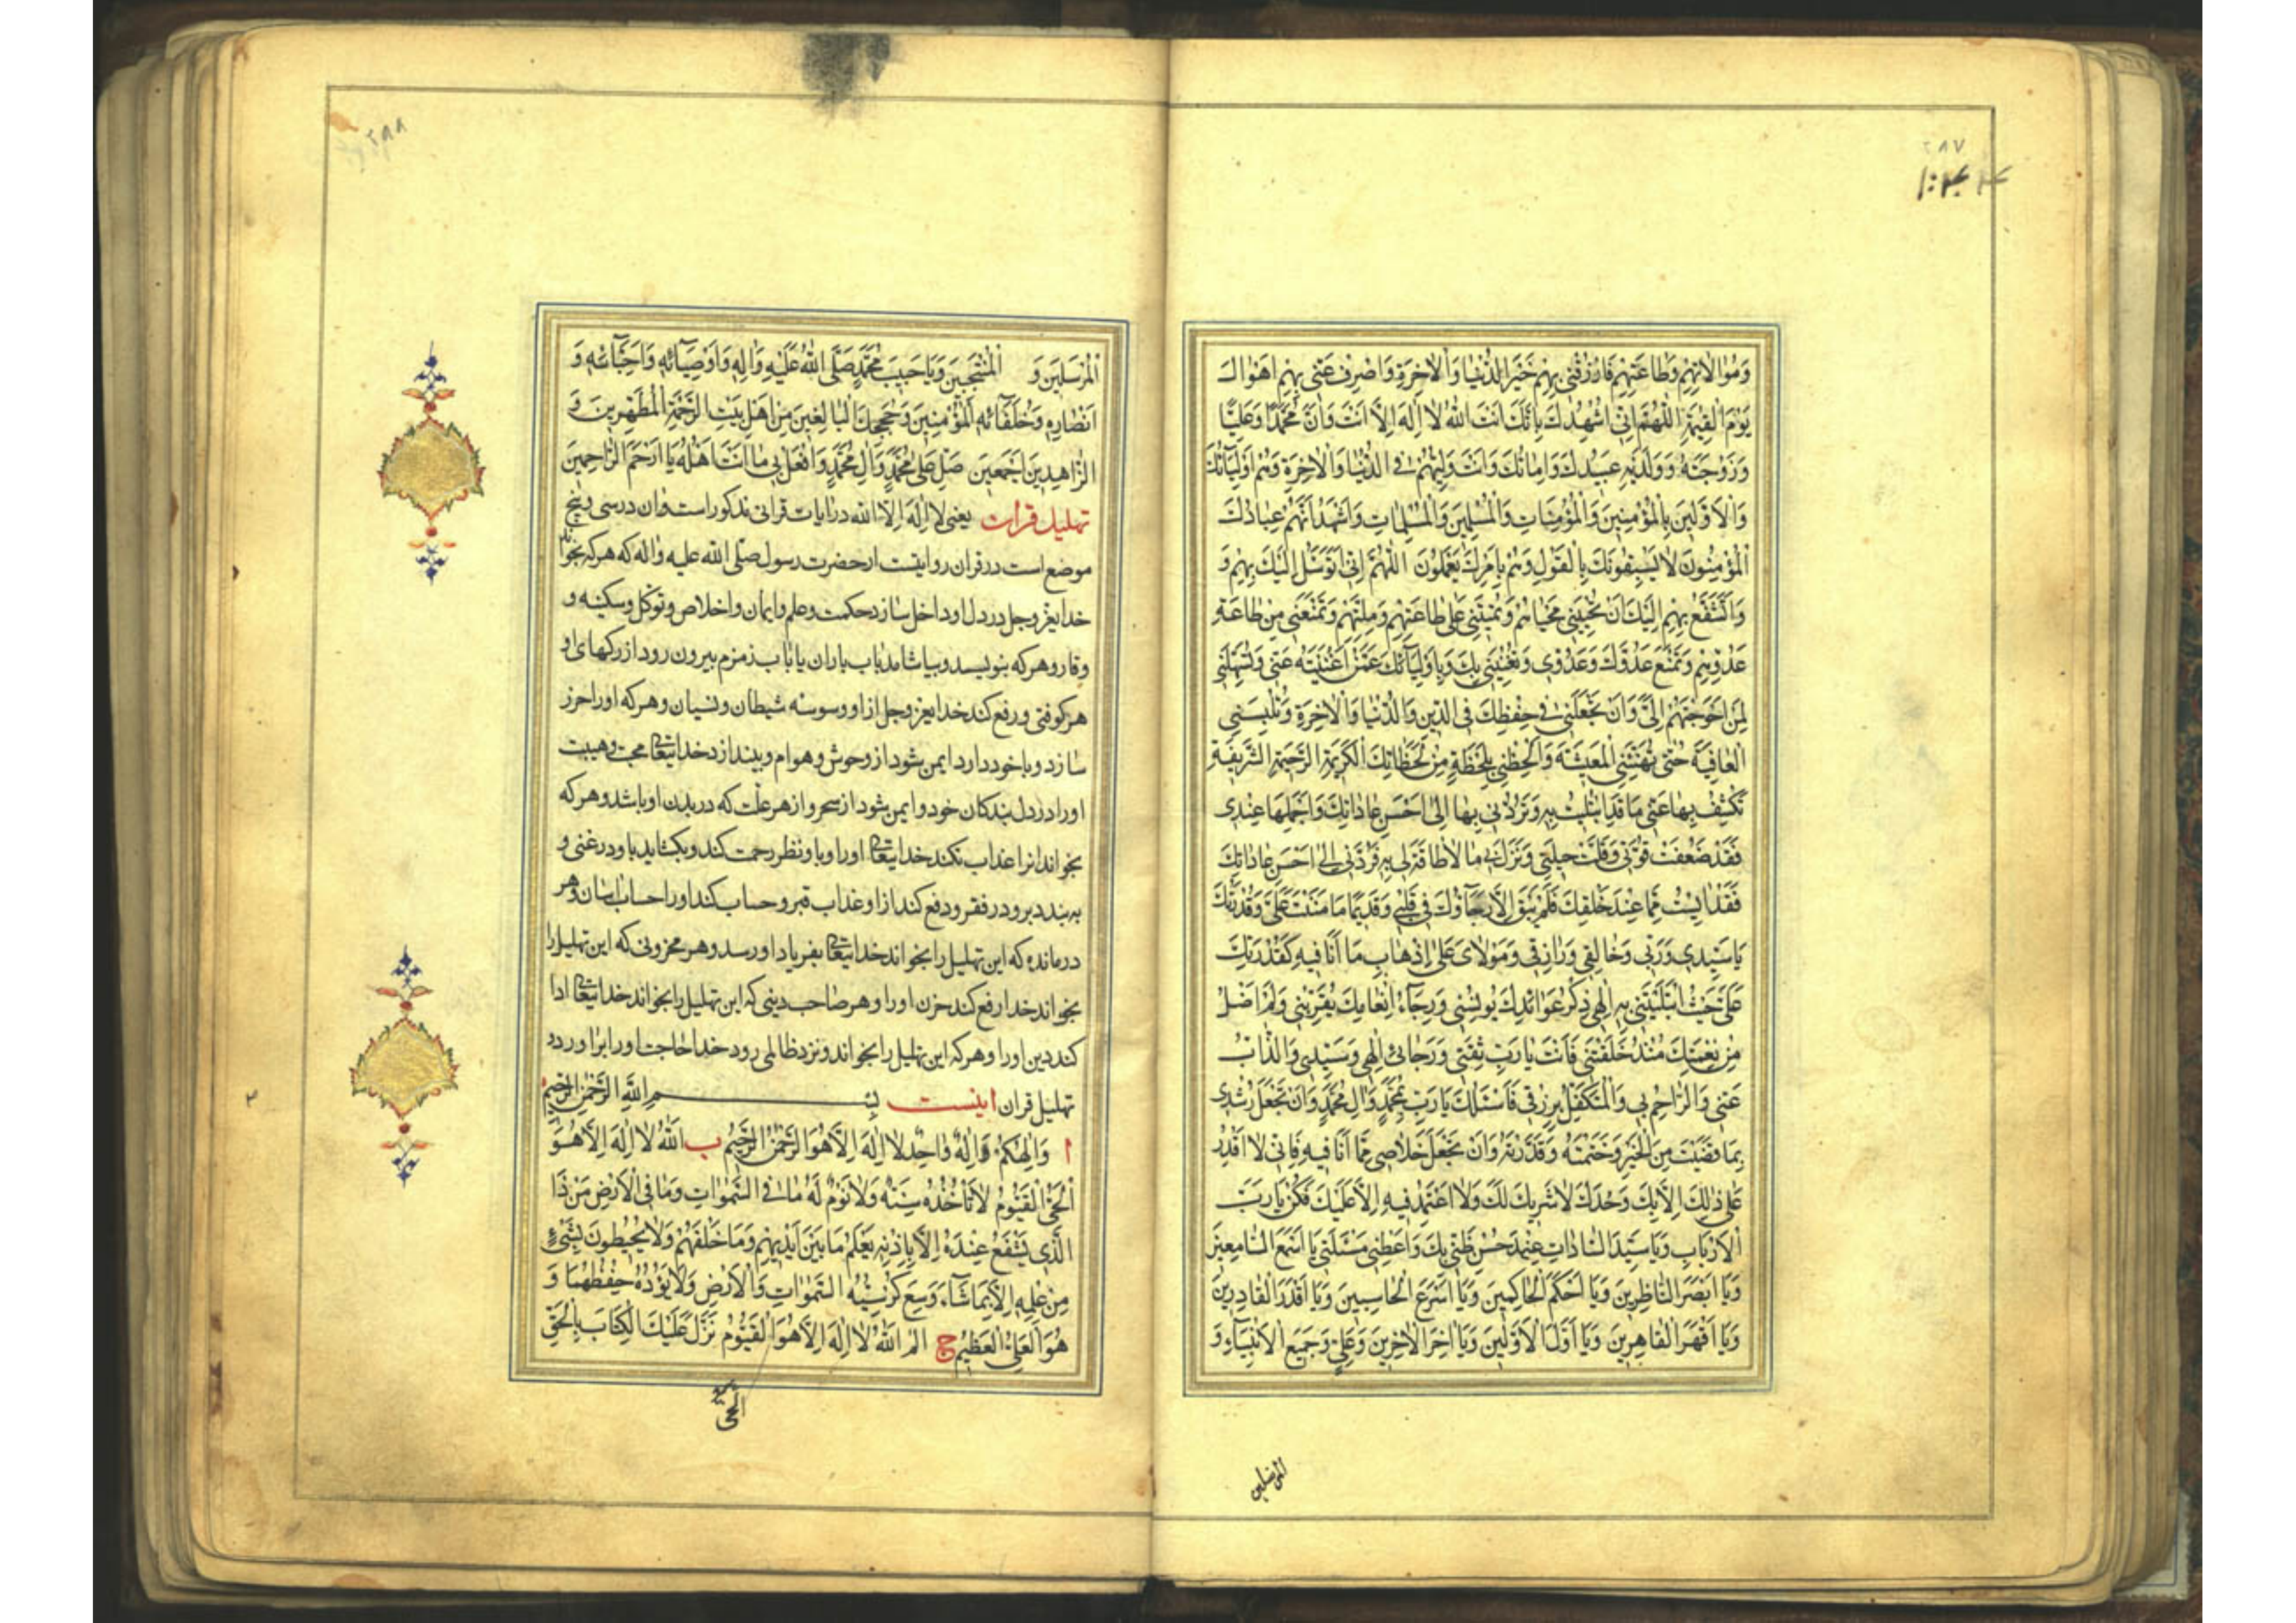 ٢٨٧
وَمُوٰالاتِهِمْ وَطٰاعَتِهِمْ فَارْزُقْنى بِهِمْ خَيْرَ الدُّنْيٰا وَالْاٰخِرَةِ وَاصْرِفْ عَنّى بِهِمْ اَهْوٰالَ
يَوْمِ الْقِيٰمَةِ اَللّٰهُمَّ اِنّى اُشْهِدُكَ بِاَنَّكَ اَنْتَ اللّٰهُ لا اِلٰهَ اِلَّا اَنْتَ وَاَنَّ مُحَمَّدًا وَعَلِيًّا
وَزَوْجَتَهُ وَوَلَدَيْهِ عَبيدُكَ وَاِمٰائُكَ وَاَنْتَ وَلِيُّهُمْ فى الدُّنْيٰا وَالْاٰخِرَةِ وَهُمْ اَوْلِيٰآئُكَ
وَالْاَوَّلينَ بِالْمُؤْمِنينَ وَالْمُؤْمِنٰاتِ وَالْمُسْلِمينَ وَالْمُسْلِمٰاتِ وَاَشْهَدُ اَنَّهُمْ عِبٰادُكَ
الْمُؤْمِنُونَ لا يَسْبِقُونَكَ بِالْقَوْلِ وَهُمْ بِاَمْرِكَ يَعْمَلُونَ اَللّٰهُمَّ اِنّى اَتَوَسَّلُ اِلَيْكَ بِهِمْ وَ
وَاَتَشَفَّعُ بِهِمْ اِلَيْكَ اَنْ تُحْيِيَنى مَحْيٰاهُمْ وَتُميتَنى عَلىٰ طٰاعَتِهِمْ وَمِلَّتِهِمْ وَتَمْنَعَنى مِنْ طٰاعَةِ
عَدُوِّهِمْ وَتَمْنَعَ عَدُوَّكَ وَعَدُوّى وَتُغْنِيَنى بِكَ وَبِاَوْلِيٰآئِكَ عَمَّنْ اَغْنَيْتَهُ عَنّى وَتُسَهِّلَنى
لِمَنْ اَحْوَجْتَهُمْ اِلَىَّ وَاَنْ تَجْعَلَنى فى حِفْظِكَ فِى الدّينِ وَالدُّنْيٰا وَالْاٰخِرَةِ وَتُلْبِسَنى
الْعٰافِيَةَ حَتّىٰ تُهَنِّئَنِى الْمَعيشَةَ وَالْحَظْنى بِلَحْظَةٍ مِنْ لَحَظٰاتِكَ الْكَريمَةِ الرَّحيمَةِ الشَّريفَةِ
تَكْشِفُ بِهٰا عَنّى مٰا قَدِ ابْتُليتُ بِهِ وَتَرُدُّنى بِهٰا اِلىٰ اَحْسَنِ عٰادٰاتِكَ وَاَجْمَلِهٰا عِنْدى
فَقَدْ ضَعُفَتْ قُوَّتى وَقَلَّتْ حيلَتى وَنَزَلَ بى مٰا لا طٰاقَةَ لى بِهِ فَرُدَّنى اِلىٰ اَحْسَنِ عٰادٰاتِكَ
فَقَدْ اَيِسْتُ مِمّٰا عِنْدَ خَلْقِكَ فَلَمْ يَبْقَ اِلَّا رَجٰآؤُكَ فى قَلْبى وَقَديمًا مٰا مَنَنْتَ عَلَىَّ وَقُدْرَتُكَ
يٰا سَيِّدى وَرَبّى وَخٰالِقى وَرٰازِقى وَمَوْلاىَ عَلىٰ اِذْهٰابِ مٰا اَنَا فيهِ كَقُدْرَتِكَ
عَلَىَّ حَيْثُ ابْتَلَيْتَنى بِهِ اِلٰهى ذِكْرُ عَوٰائِدِكَ يُونِسُنى وَرَجٰآءُ اِنْعٰامِكَ يُقَرِّبُنى وَلَمْ اَخْلُ
مِنْ نِعْمَتِكَ مُنْذُ خَلَقْتَنى فَاَنْتَ يٰا رَبِّ ثِقَتى وَرَجٰائى اِلٰهى وَسَيِّدى وَالذّٰآبُّ
عَنّى وَالرّٰاحِمُ بى وَالْمُتَكَفِّلُ بِرِزْقى فَاَسْئَلُكَ يٰا رَبِّ بِمُحَمَّدٍ وَاٰلِ مُحَمَّدٍ وَاَنْ تَجْعَلَ رُشْدى
بِمٰا قَضَيْتَ مِنَ الْخَيْرِ وَحَتَمْتَهُ وَقَدَّرْتَهُ وَاَنْ تَجْعَلَ خَلاصى مِمّٰا اَنَا فيهِ فَاِنّى لا اَقْدِرُ
عَلىٰ ذٰلِكَ اِلَّا بِكَ وَحْدَكَ لا شَريكَ لَكَ وَلا اَعْتَمِدُ فيهِ اِلَّا عَلَيْكَ فَكُنْ يٰا رَبَّ
الْاَرْبٰابِ وَيٰا سَيِّدَ السّٰادٰاتِ عِنْدَ حُسْنِ ظَنّى بِكَ وَاَعْطِنى مَسْئَلَتى يٰا اَسْمَعَ السّٰامِعينَ
وَيٰا اَبْصَرَ النّٰاظِرينَ وَيٰا اَحْكَمَ الْحٰاكِمينَ وَيٰا اَسْرَعَ الْحٰاسِبينَ وَيٰا اَقْدَرَ الْقٰادِرينَ
وَيٰا اَقْهَرَ الْقٰاهِرينَ وَيٰا اَوَّلَ الْاَوَّلينَ وَيٰا اٰخِرَ الْاٰخِرينَ وَعَلِىٍّ وَجَميعِ الْاَنْبِيٰآءِ وَ
المرسلین
٢٨٨
الْمُرْسَلينَ وَ الْمُنْتَجَبينَ وَيٰا حَبيبَ مُحَمَّدٍ صَلَّى اللّٰهُ عَلَيْهِ وَاٰلِهِ وَاَوْصِيٰآئِهِ وَاَحِبّٰآئِهِ وَ
اَنْصٰارِهِ وَخُلَفٰآئِهِ الْمُؤْمِنينَ وَحُجَجِكَ الْبٰالِغينَ مِنْ اَهْلِ بَيْتِ الرَّحْمَةِ الْمُطَهَّرينَ وَ
الزّٰاهِدينَ اَجْمَعينَ صَلِّ عَلىٰ مُحَمَّدٍ وَاٰلِ مُحَمَّدٍ وَافْعَلْ بى مٰا اَنْتَ اَهْلُهُ يٰا اَرْحَمَ الرّٰاحِمينَ
تهلیل قرات یعنی لا اله الا الله در ایات قرانی مذکور است وان در سی و پنج
موضع است در قران روایتست از حضرت رسول صلّی الله علیه واله که هرکه بخواند
خدایعزوجل در دل او داخل سازد حکمت وعلم وایمان واخلاص وتوکل وسکینه و
وقار وهرکه بنویسد وبیاشامد باب باران یا باب زمزم بیرون رود از رکهای او
هر کوفتی ورفع کند خدایعزوجل از او وسوسه شیطان ونسیان وهرکه اورا حرز
سازد وبا خود دارد ایمن شود از وحوش وهوام وبیندازد خدایتعالی محبت وهیبت
اورا در دل بندکان خود وایمن شود از سحر واز هر علّت که در بدن او باشد وهرکه
بخواند انرا عذاب نکند خدایتعالی اورا وباو نظر رحمت کند وبکشاید باو در غنی و
به بندد برو در فقر ودفع کند ازاو عذاب قبر وحساب کند اورا حساب اسان وهر
درمانده که این تهلیل را بخواند خدایتعالی بفریاد او رسد وهر محزونی که این تهلیل را
بخواند خدا رفع کند حزن اورا وهر صاحب دینی که این تهلیل را بخواند خدایتعالی ادا
کند دین اورا وهرکه این تهلیل را بخواند ونزد ظالمی رود خدا حاجت اورا براورد
تهلیل قران اینست بِسْمِ اللّٰهِ الرَّحْمٰنِ الرَّحيمِ
ا وَاِلٰهُكُمْ اِلٰهٌ وٰاحِدٌ لا اِلٰهَ اِلَّا هُوَ الرَّحْمٰنُ الرَّحيمُ ب اَللّٰهُ لا اِلٰهَ اِلَّا هُوَ
الْحَىُّ الْقَيُّومُ لا تَأْخُذُهُ سِنَةٌ وَلا نَوْمٌ لَهُ مٰا فِى السَّمٰوٰاتِ وَمٰا فِى الْاَرْضِ مَنْ ذَا
الَّذى يَشْفَعُ عِنْدَهُ اِلَّا بِاِذْنِهِ يَعْلَمُ مٰا بَيْنَ اَيْديهِمْ وَمٰا خَلْفَهُمْ وَلا يُحيطُونَ بِشَىْءٍ
مِنْ عِلْمِهِ اِلَّا بِمٰا شٰآءَ وَسِعَ كُرْسِيُّهُ السَّمٰوٰاتِ وَالْاَرْضَ وَلا يَؤُدُهُ حِفْظُهُمٰا وَ
هُوَ الْعَلِىُّ الْعَظيمُ ج الم اَللّٰهُ لا اِلٰهَ اِلَّا هُوَ الْقَيُّومُ نَزَّلَ عَلَيْكَ الْكِتٰابَ بِالْحَقِّ
الحی